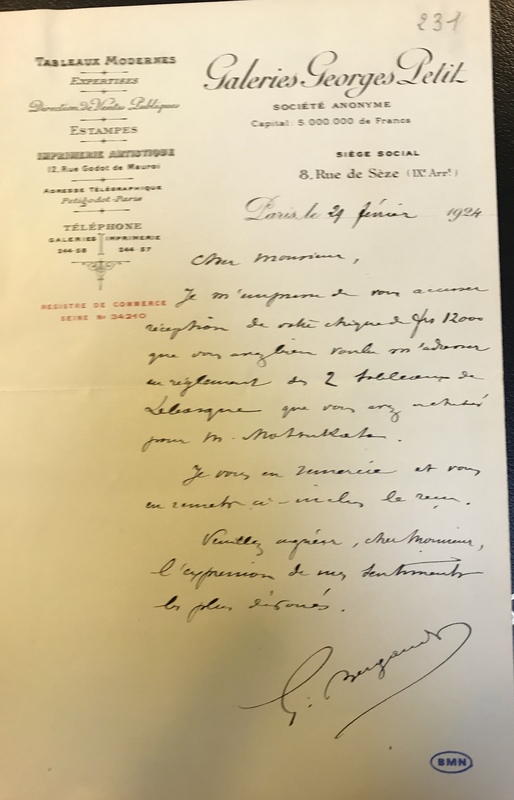 231
TABLEAUX MODERNES
EXPERTISES
Direction de Ventes Publiques
ESTAMPES
IMPRIMERIE ARTISTIQUE
12, Rue Godot de Mauroi
ADRESSE TÉLÉGRAPHIQUE
Petigodot-Paris
TÉLÉPHONE
GALERIES IMPRIMERIE
244-58 244-57
REGISTRE DE COMMERCE
SEINE No 34210
Galeries Georges Petit
SOCIÉTÉ ANONYME
Capital: 5.000.000 de Francs
SIÈGE SOCIAL
8, Rue de Sèze (IXe Arrt)
Paris, le 29 février 1924
Cher Monsieur,
Je m'empresse de vous accuser
réception de votre chèque de frs 12000
que vous avez bien voulu m'adresser
en règlement des 2 tableaux de
Lebasque que vous avez achetés
pour M. Matsukata.
Je vous en remercie et vous
en remets ci-inclus le reçu.
Veuillez agréer, cher Monsieur,
l'expression de mes sentiments
les plus dévoués.
G.
BMN